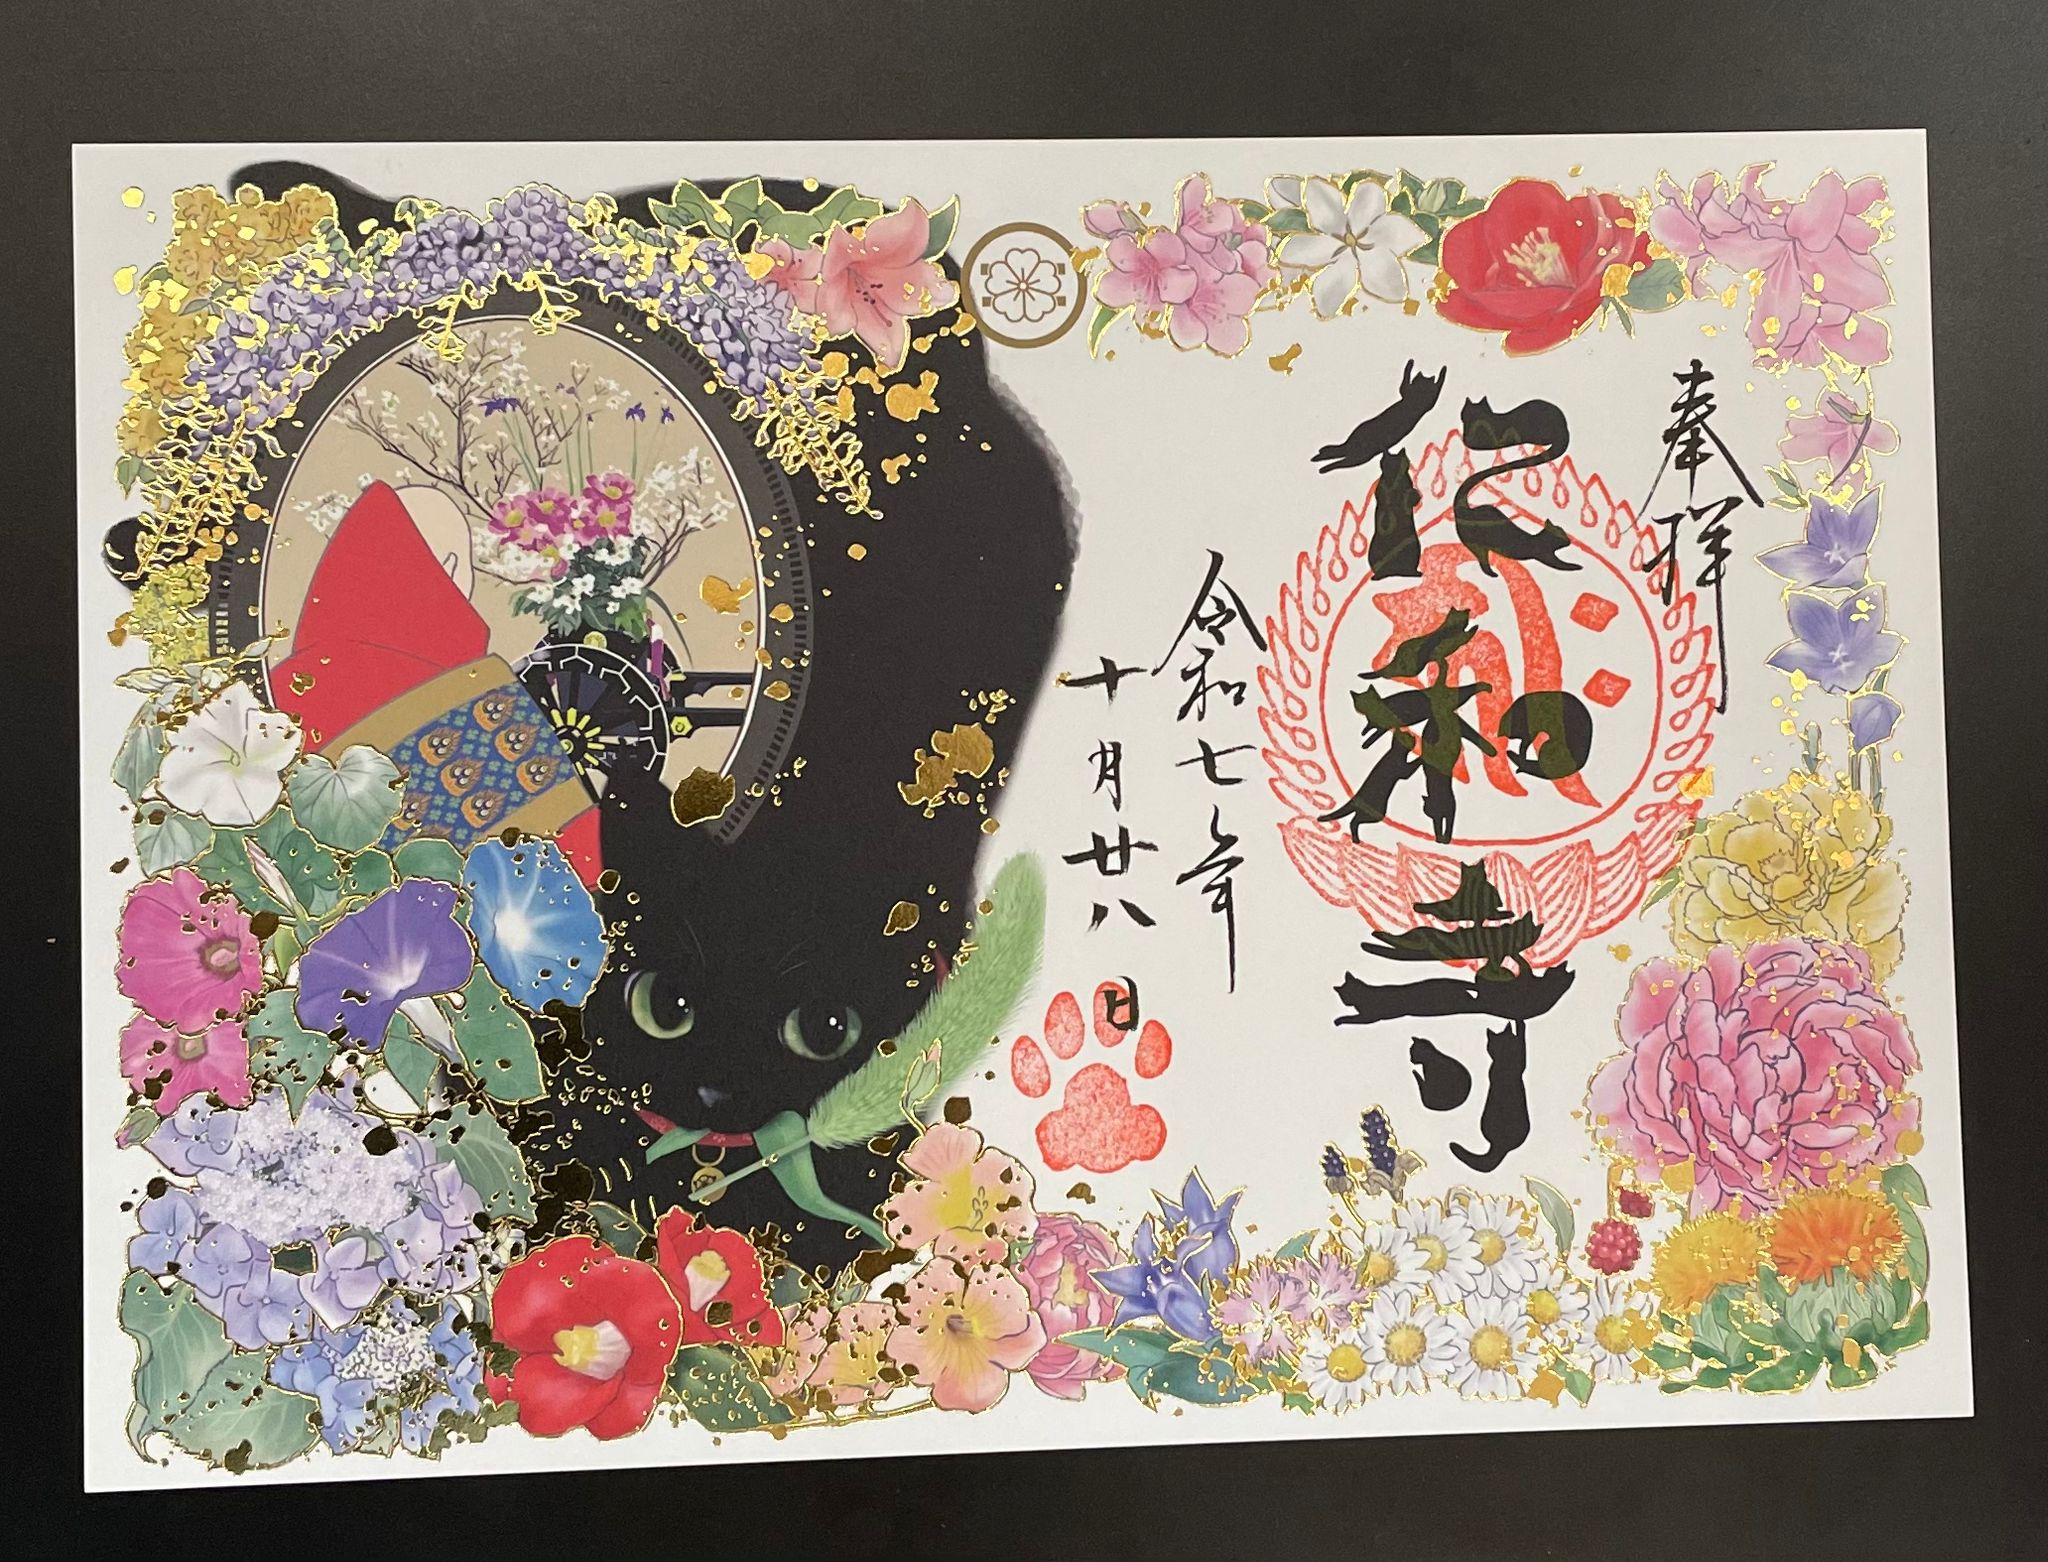 奉拝
仁和寺
令和七年
十月廿八日